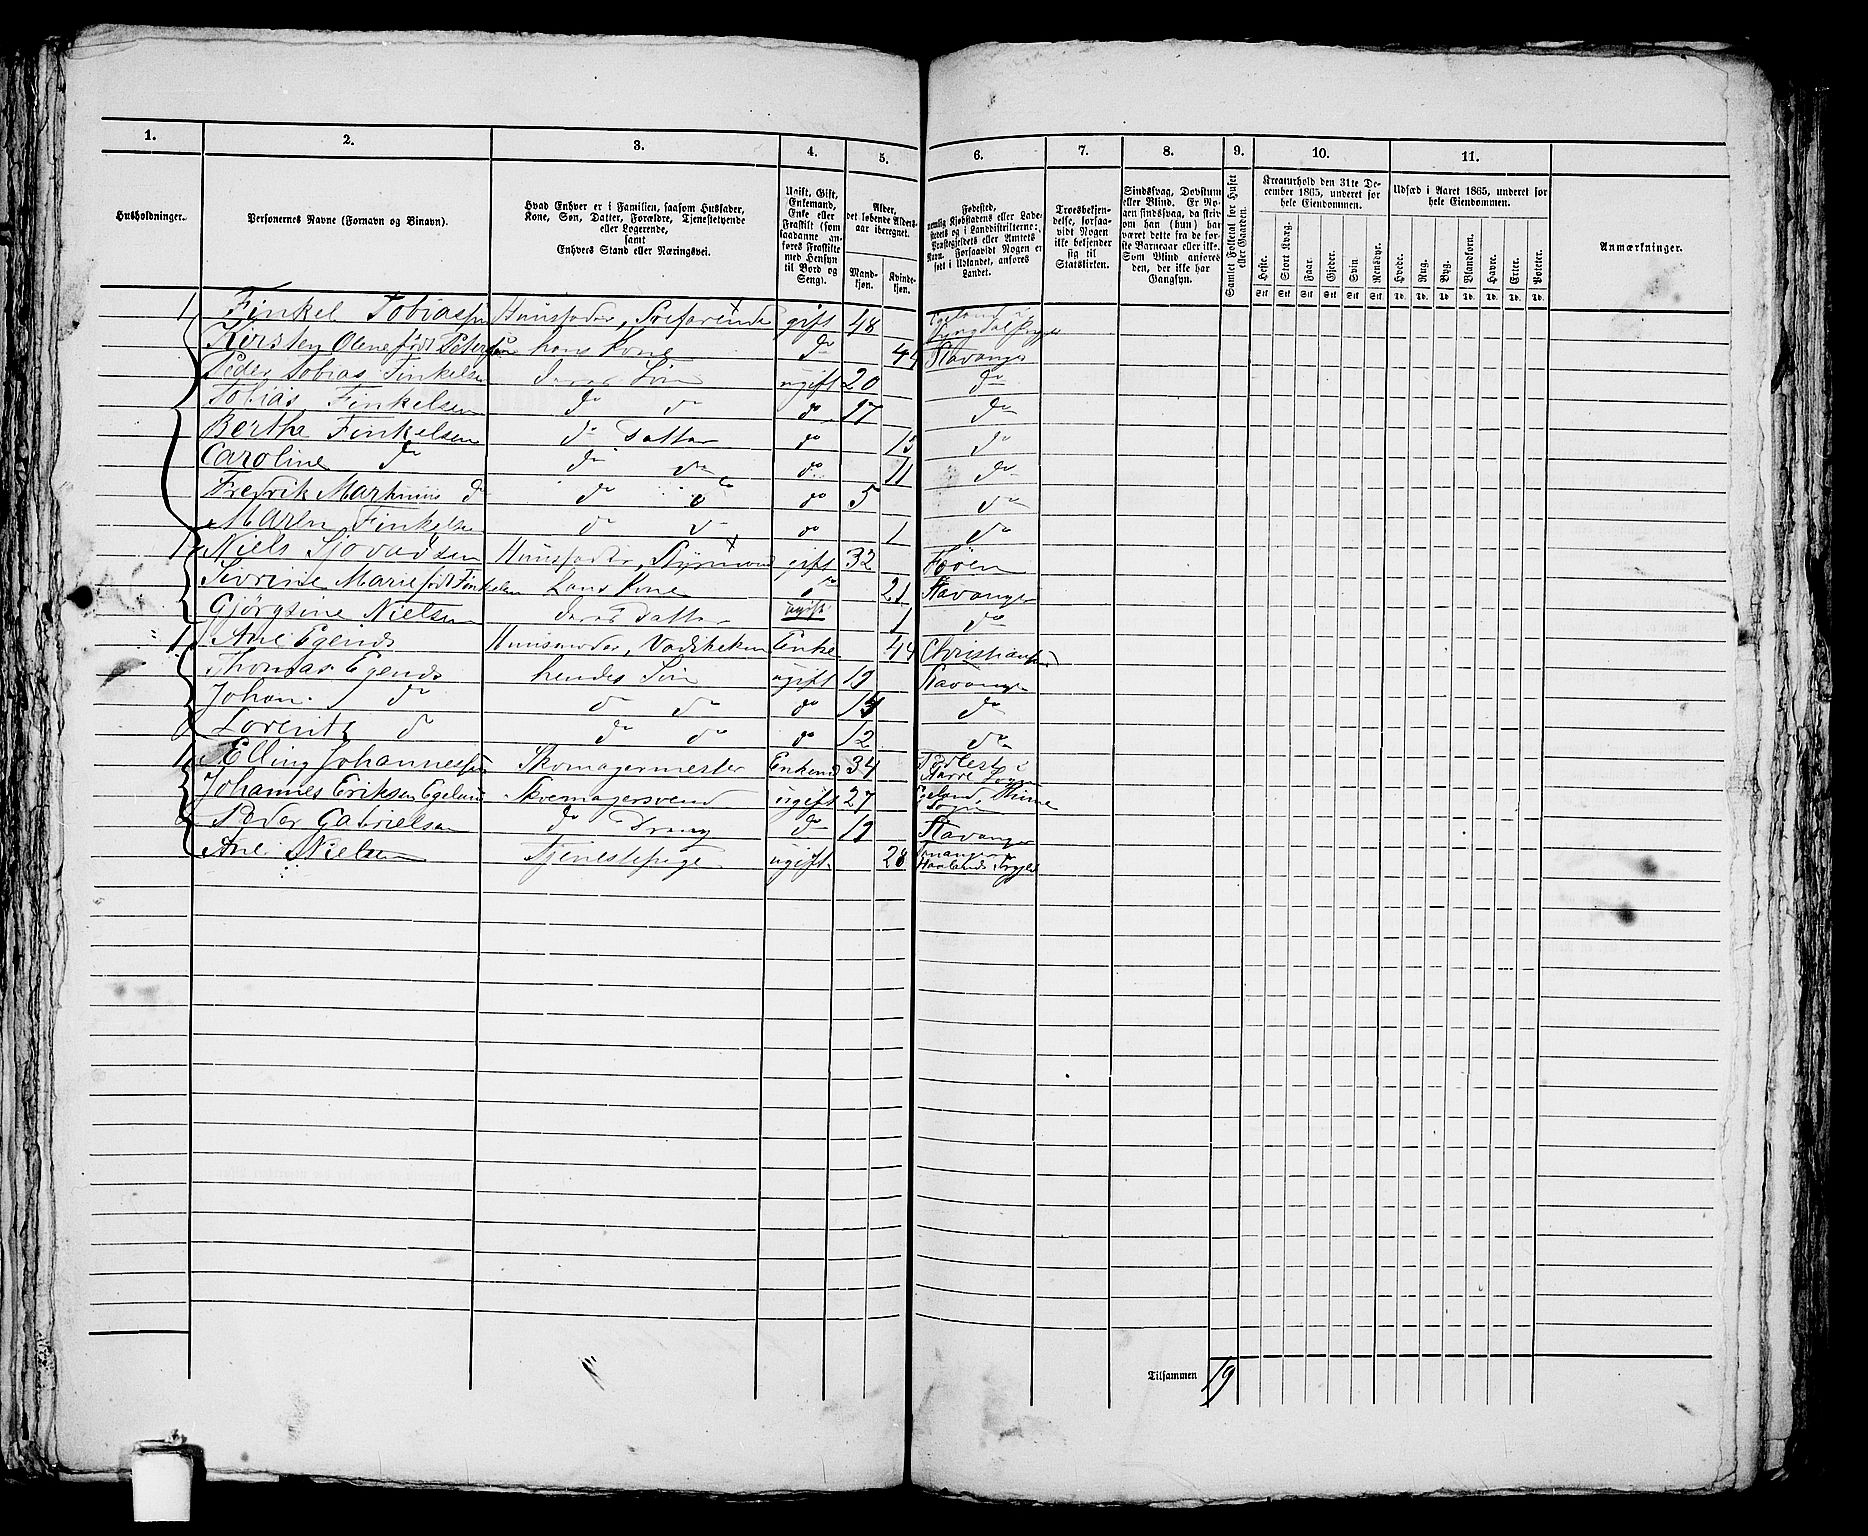 1. 2. 3. 4. 5. 6. 7. 8. 9. 10. 11.
Husholdninger.
Personernes Navne (Fornavn og Binavn).
Hvad Enhver er i Familien, saasom Husfader,
Kone, Søn, Datter, Forældre, Tjenestetyende
eller Logerende,
samt
Enhvers Stand eller Næringsvei.
Ugift, Gift,
Enkemand,
Enke eller
Fraskilt (som
saadanne an-
føres Fraskilte
med Hensyn
til Bord og
Seng).
Alder,
det løbende Alders-
aar iberegnet.
Mand-
kjøn.
Kvinde-
kjøn.
Fødested,
nemlig Kjøbstadens eller Lade-
stedets og i Landdistrikterne:
Præstegjeldets eller Amtets
Navn. Forsaavidt Nogen er
født i Udlandet, anføres
Landet.
Troesbekjen-
delse, forsaa-
vidt Nogen
ikke bekjender
sig til
Statskirken.
Sindssvag, Døvstum
eller Blind. Er No-
gen sindssvag, da skri-
ves om han (hun) har
været dette fra de før-
ste Barneaar eller ikke.
Som Blind anføres
den, der ikke har
Gangsyn.
Samlet Folketal for Huset
eller Gaarden.
Kreaturhold den 31te De-
cember 1865, underet for
hele Eiendommen.
Heste. Stort Kvæg. Faar. Gjeder. Svin. Rensdyr.
Stk Stk Stk Stk Stk Stk
Udsæd i Aaret 1865, underet for
hele Eiendommen.
Hvede. Rug. Byg. Blandkorn. Havre. Erter. Poteter.
Td. Td. Td. Td. Td. Td. Td.
Anmærkninger.
1 Finkel Tobiassen Huusfader, Søefarende gift 48
Kirsten Olene født Petersen hans Kone do 44 Stavanger
Peder Tobias Finkelsen deres Søn ugift 20 do
Tobias Finkelsen do do do 17 do
Berthe Finkelsen do Datter do 15 do
Caroline do do do do 11 do
Fredrik Martinius do do do do 5 do
Maren Finkelsen do do do 1 do
1 Niels Sjovadsen Huusfader, Styrmand gift 32 Foøen
Sivrine Marie født Finkelsen hans Kone do 21 Stavanger
Gjørgsine Nielsen deres Datter ugift 1 do
1 Ane Egends Huusmoder, Enke 44 Christiansand
Thomas Egends hendes Søn ugift 19 Stavanger
Johan do do do do 14 do
Lorents do do do do 12 do
1 Elling Johannessen Skomagermester Enkemd 34
Johannes Eriksen Egeland Skomagersvend ugift 27 Egeland, Thime Sogn
Peder Gabrielsen do Dreng do 19 Stavanger
Ane Nielsen Tjenestepige ugift 28 Haalands Prgjeld
Tilsammen 19